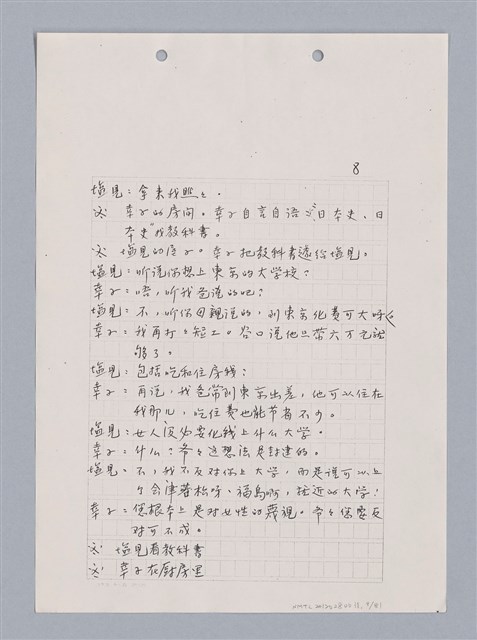 8
塩見：拿来我瞧々．
※ 幸子的房间。幸子自言自语“日本史、日
本史”找教科書。
※ 塩見的房子。幸子把教科書遞给塩見。
塩見：听说你想上東京的大学校？
幸子：唔，听我爸说的吧？
塩見：不，听你母親说的，到東京化費可大呀
幸子：我再打々短工。谷口说他只带六万元就
够了。
塩見：包括吃和住房钱？
幸子：再说，我爸常到東京出差，他可以住在
我那儿，吃住費也能节省不少。
塩見：女人没必要化钱上什么大学。
幸子：什么？爷々这想法是封建的。
塩見、不，我不反对你上大学，而是说可以上
个会津若松呀、福島啊，挂近的大学！
幸子：您根本上是对女性的蔑視。爷々您要反
对可不成。
※ 塩見看教科書
※ 幸子在厨房里